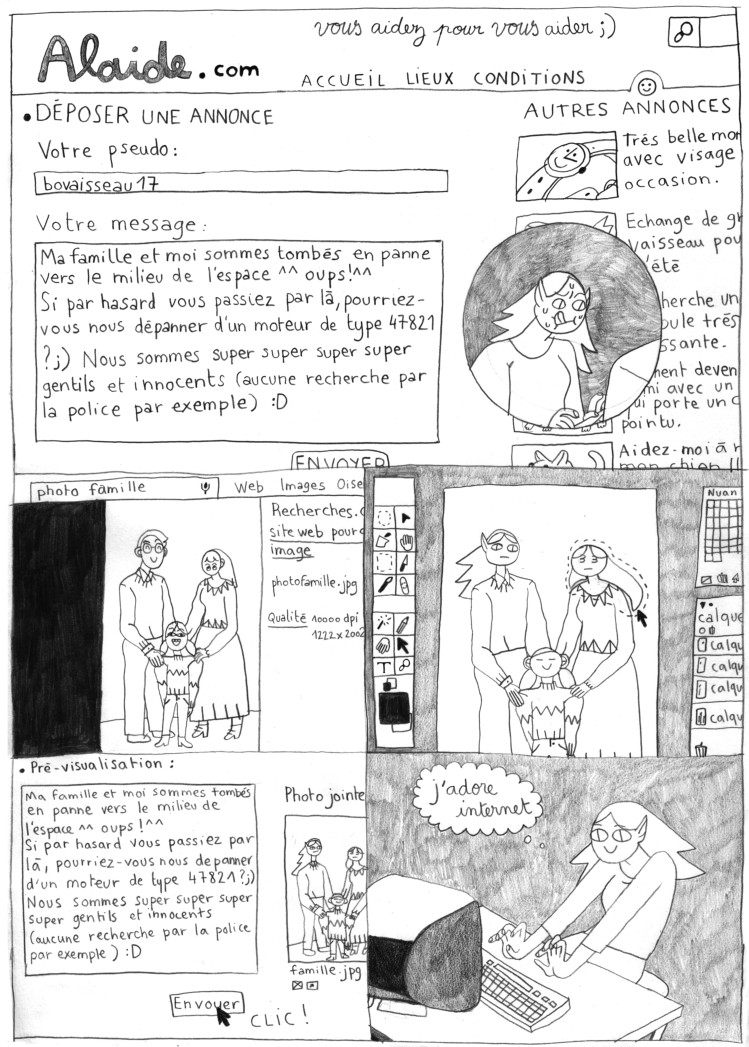 vous aidez pour vous aider ;)
Alaide.com
ACCUEIL LIEUX CONDITIONS
• DÉPOSER UNE ANNONCE
Votre pseudo :
bovaisseau17
Votre message :
Ma famille et moi sommes tombés en panne
vers le milieu de l'espace ^^ oups!^^
Si par hasard vous passiez par là, pourriez-
vous nous dépanner d'un moteur de type 47821
?;) Nous sommes super super super super
gentils et innocents (aucune recherche par
la police par exemple) :D
ENVOYER
AUTRES ANNONCES
Très belle mon
avec visage
occasion.
Echange de gr
vaisseau pou
l'été
herche un
oule très
ssante.
ment deven
mi avec un
ui porte un c
pointu.
Aidez-moi à r
mon chien !!
photo famille
Web Images Oise
Recherches.
site web pour
image
photofamille.jpg
Qualité 10000 dpi
1222 x 2002
T
Nuan
calque
calqu
calqu
calqu
calqu
• Pré-visualisation :
Ma famille et moi sommes tombés
en panne vers le milieu de
l'espace ^^ oups !^^
Si par hasard vous passiez par
là, pourriez-vous nous depanner
d'un moteur de type 47821?;)
Nous sommes super super super
super gentils et innocents
(aucune recherche par la police
par exemple ) :D
Photo jointe
famille.jpg
Envoyer
CLIC !
j'adore
internet